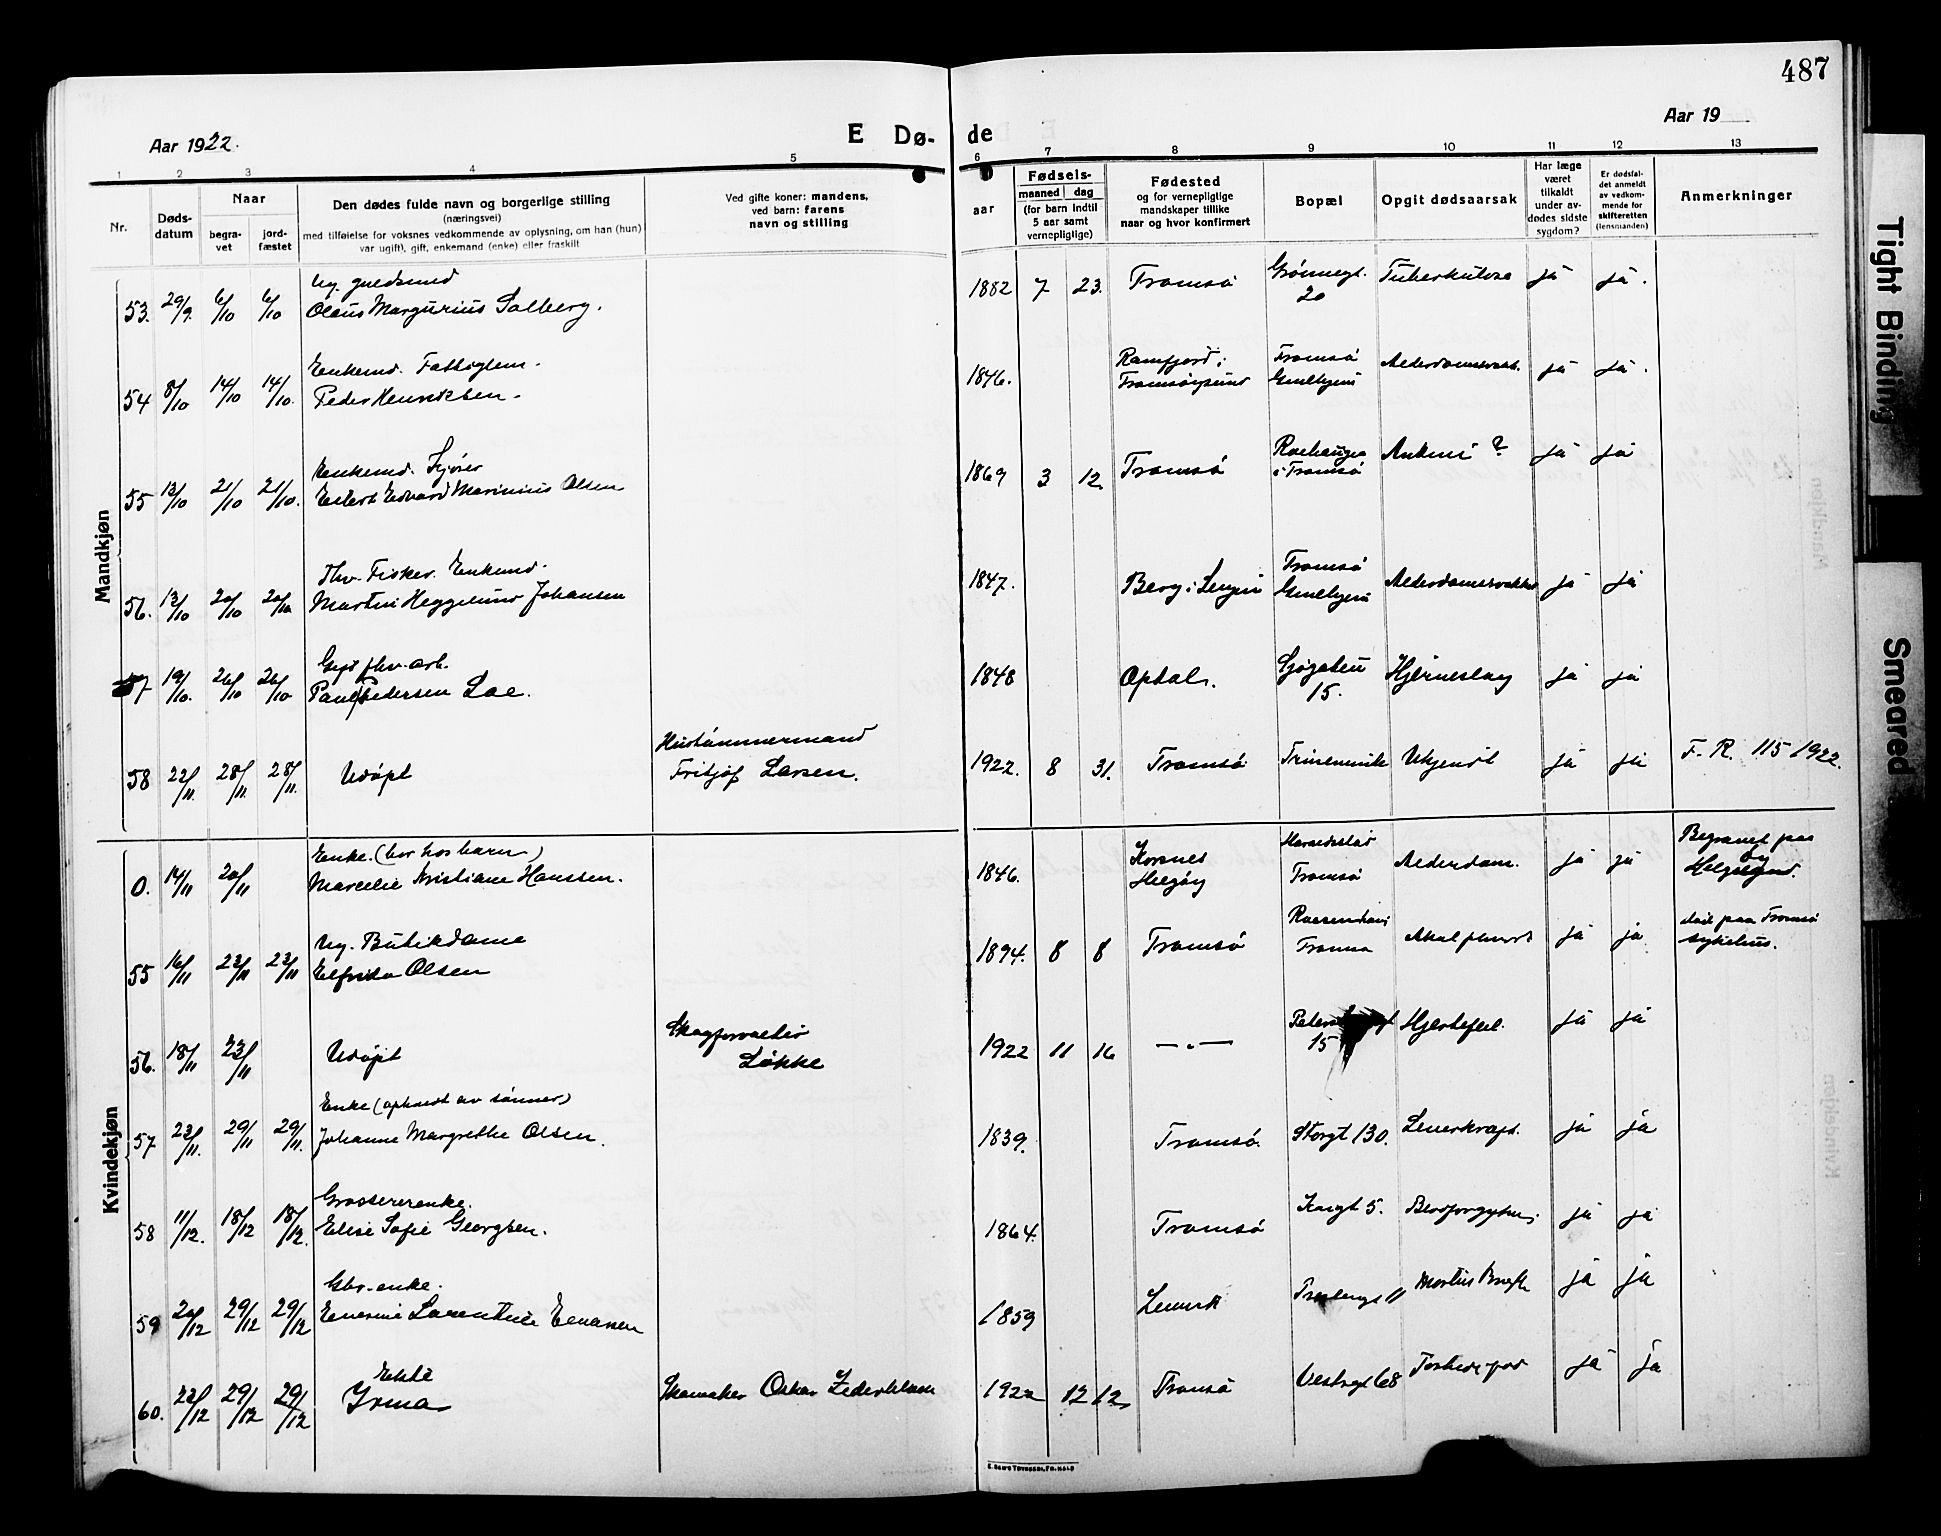 487
Aar 1922.
E Dø-
de
Aar 19
1 2 3 4 5 6 7 8 9 10 11 12 13
Nr.
Døds-
datum
Naar
begra-
vet
jord-
fæstet
Den dødes fulde navn og borgerlige stilling
(næringsvei)
med tilføielse for voksnes vedkommende av oplysning, om han (hun)
var ugift), gift, enkemand (enke) eller fraskilt
Ved gifte koner: mandens,
ved barn: farens
navn og stilling
Fødsels-
aar
maaned dag
(for barn indtil
5 aar samt
vernepligtige)
Fødested
og for vernepligtige
mandskaper tillike
naar og hvor konfirmert
Bopæl
Opgit dødsaarsak
Har læge
været
tilkaldt
under av-
dødes sidste
sygdom?
Er dødsfal-
det anmeldt
av vedkom-
mende for
skifteretten
(lensmanden)
Anmerkninger
Mandkjøn
Ug. guldsmed
53. 29/9. 6/10 6/10 Olaus Margurius Solberg. 1882 7 23. Tromsø Grønnegt. 20 Tuberkulose ja ja.
Enkemd. Fattiglem.
54 8/10 14/10 14/10. Peder Henriksen. 1846. Ramfjord i Tromsøysund Tromsø Gmlhjem ja ja.
Enkemd. Skjøres
55 13/10 21/10 21/10. Edvard Marinius Olsen 1869 3 12. Tromsø i Tromsø ? ja ja
Fhv. Fisker. Enkemd.
56. 13/10 20/10 20/10 Martin Heggelund Johansen 1847. Berg i Senjen Tromsø Gmlhjem Alderdomssvakhet ja ja
Gift fhv. arb.
57 19/10. 26/10 26/10 Paul Pedersen Loe. 1848 Opdal. Sjøgaten 15. Hjerneslag ja ja
Hustømmermand
58 22/11. 28/11. 28/11. Udøpt Fritjof Larsen. 1922. 8 31. Tromsø Ukjendt ja ja F. R. 115 1922.
Kvindekjøn
Enke. (bor hos barn)
0. 14/11 20/11 Kristiane Hanssen. 1846. Korsnes Helgøy Tromsø Alderdom. ja ja Begravet paa
Ug. Butikdame
55 16/11 23/11 23/11 Elfrida Olsen 1894. 8 8 Tromsø ja ja død paa Tromsø sykehus.
56. 18/11 23/11 Udøpt Løkke 1922 11 16 — " — 15 Hjertefeil. ja ja
Enke (opholdt av sønner)
57 23/11. 29/11 29/11. Johanne Margrethe Olsen. 1839. Tromsø. Storgt 130. ja ja
Grossererenke.
58 11/12. 18/12 18/12. Elise Sofie Georgsen. 1864. Tromsø 5. ja ja
Gbr. enke.
59 20/12 29/12 29/12 Lorentine 1859 Lenvik 11 ja ja
Ekte
60. 22/12 29/12 29/12 Irma Skomaker Oskar 1922 12 12. Tromsø Vestregt 68 ja ja
Tight Binding
Smeared